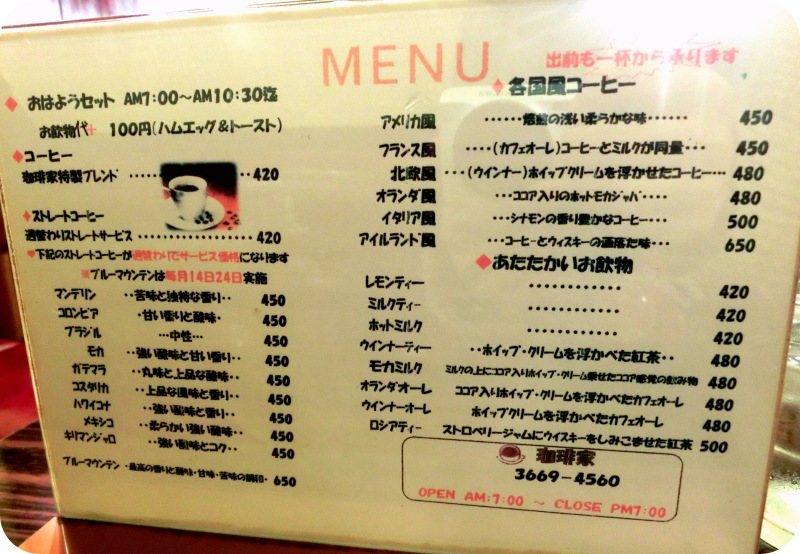 MENU
出前も一杯から承ります
◆ おはようセット AM7:00~AM10:30迄
お飲物代+ 100円(ハムエッグ&トースト)
◆コーヒー
珈琲家特製ブレンド ・・・・・・・・420
◆ストレートコーヒー
週替わりストレートサービス ・・・・・・・・・・・・・・・・・ 420
♥下記のストレートコーヒーが週替わりでサービス価格になります
※ブルーマウンテンは毎月14日24日実施
マンデリン ・・苦味と独特な香り・・ 450
コロンビア ・甘い香りと酸味・ 450
ブラジル ・・・中性・・・ 450
モカ ・・強い酸味と甘い香り・・ 450
ガテマラ ・・丸味と上品な酸味・・ 450
コスタリカ ・・上品な風味と香り・・ 450
ハワイコナ ・・強い酸味と香り・・ 450
メキシコ ・・柔らかい強い酸味・・ 450
キリマンジャロ ・・強い酸味とコク・・ 450
ブルーマウンテン ・最高の香りと酸味・甘味・苦味の調和・ 650
◆各国風コーヒー
アメリカ風 ・・・・・・焙煎の浅い柔らかな味・・・・・・ 450
フランス風 ・・・・(カフェオーレ)コーヒーとミルクが同量・・・ 450
北欧風 ・・・(ウインナー)ホイップクリームを浮かせたコーヒー・・・ 480
オランダ風 ・・・ココア入りのホットモカジャバ・・・・ 480
イタリア風 ・・・シナモンの香り豊かなコーヒー・・・・ 500
アイルランド風 ・・・コーヒーとウィスキーの洒落た味・・・ 650
◆あたたかいお飲物
レモンティー ・・・・・・・・・・・・ 420
ミルクティー ・・・・・・・・・・・・ 420
ホットミルク ・・・・・・・・・・・・ 420
ウインナーティー ・・ホイップ・クリームを浮かべた紅茶・・ 480
モカミルク ミルクの上にココア入りホイップ・クリーム乗せたココア感覚の飲み物 480
オランダオーレ ココア入りホイップ・クリームを浮かべたカフェオーレ 480
ウインナーオーレ ホイップクリームを浮かべたカフェオーレ 480
ロシアティー ストロベリージャムにウイスキーをしみこませた紅茶 500
珈琲家
3669-4560
OPEN AM:7:00 ~ CLOSE PM7:00